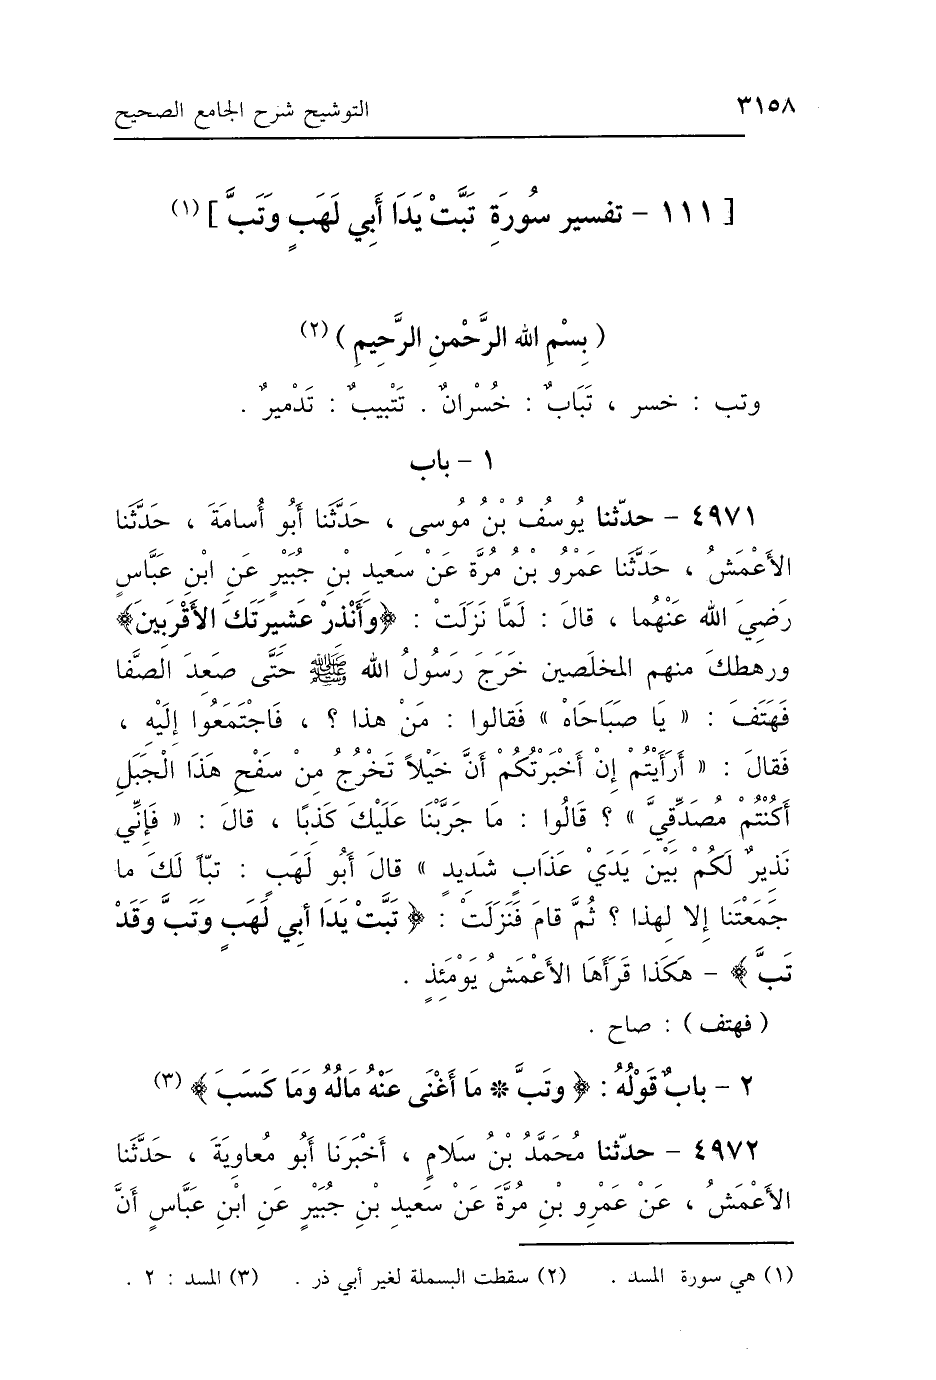 ٣١٥٨ التوشيح شرح الجامع الصحيح
[ ١١١ - تفسير سُورَةِ تَبَّتْ يَدَا أَبِي لَهَبٍ وَتَبَّ ] (١)
( بِسْمِ الله الرَّحْمنِ الرَّحِيمِ ) (٢)
وتب : خسر ، تَبَابٌ : خُسْرانٌ . تَتْبِيبٌ : تَدْمِيرٌ .
١ - باب
٤٩٧١ - حدّثنا يُوسُفُ بْنُ مُوسى ، حَدَّثَنا أَبُو أُسامَةَ ، حَدَّثَنا
الأَعْمَشُ ، حَدَّثَنا عَمْرُو بْنُ مُرَّةَ عَنْ سَعِيدِ بْنِ جُبَيْرٍ عَنِ ابْنِ عَبَّاسٍ
رَضِيَ الله عَنْهُما ، قالَ : لَمَّا نَزَلَتْ : ﴿وَأَنْذِرْ عَشِيرَتَكَ الأَقْرَبِينَ﴾
ورهطكَ منهم المخلَصين خَرَجَ رَسُولُ الله ﷺ حَتَّى صَعِدَ الصَّفا
فَهَتَفَ : « يَا صَبَاحَاهْ » فَقالوا : مَنْ هذا ؟ ، فَاجْتَمَعُوا إِلَيْهِ ،
فَقالَ : « أَرَأَيْتُمْ إِنْ أَخْبَرْتُكُمْ أَنَّ خَيْلاً تَخْرُجُ مِنْ سَفْحِ هَذَا الْجَبَلِ
أَكُنْتُمْ مُصَدِّقِيَّ » ؟ قَالُوا : مَا جَرَّبْنَا عَلَيْكَ كَذِبًا ، قالَ : « فَإِنِّي
نَذِيرٌ لَكُمْ بَيْنَ يَدَيْ عَذَابٍ شَدِيدٍ » قالَ أَبُو لَهَبٍ : تَبّاً لَكَ ما
جَمَعْتَنا إِلا لِهذا ؟ ثُمَّ قامَ فَنَزَلَتْ : ﴿ تَبَّتْ يَدَا أَبِي لَهَبٍ وَتَبَّ وَقَدْ
تَبَّ ﴾ - هكَذا قَرَأَهَا الأَعْمَشُ يَوْمَئِذٍ .
( فهتف ) : صاح .
٢ - بابٌ قَوْلُهُ : ﴿ وتَبَّ * مَا أَغْنَى عَنْهُ مَالُهُ وَمَا كَسَبَ ﴾ (٣)
٤٩٧٢ - حدّثنا مُحَمَّدُ بْنُ سَلَامٍ ، أَخْبَرَنا أَبُو مُعاوِيَةَ ، حَدَّثَنا
الأَعْمَشُ ، عَنْ عَمْرِو بْنِ مُرَّةَ عَنْ سَعِيدِ بْنِ جُبَيْرٍ عَنِ ابْنِ عَبَّاسٍ أَنَّ
(١) هي سورة المسد . (٢) سقطت البسملة لغير أبي ذر . (٣) المسد : ٢ .